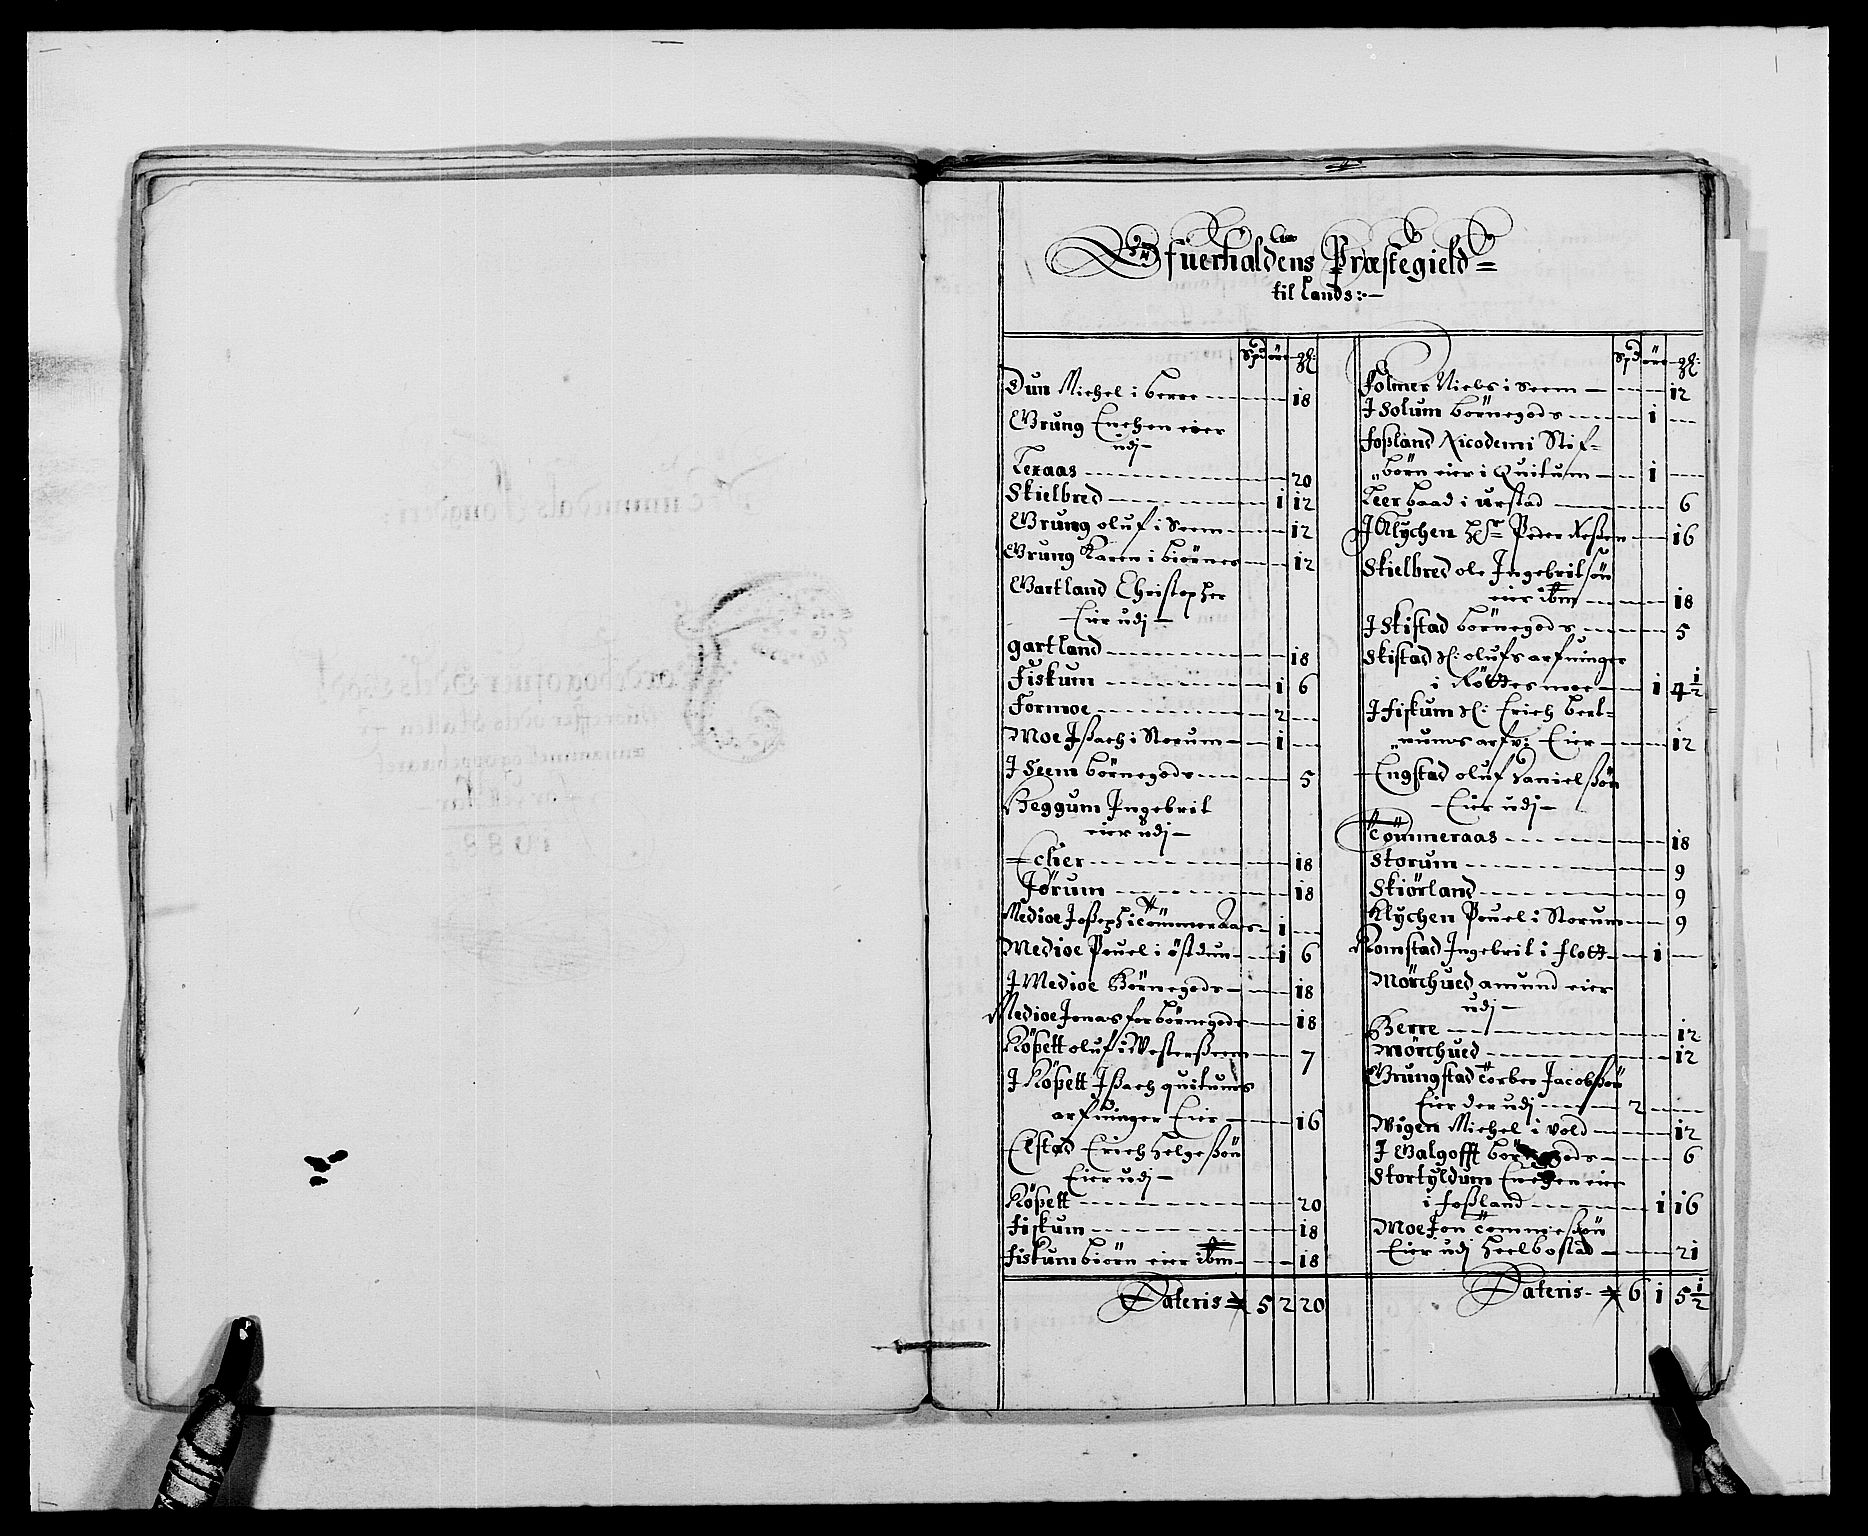 Ofuerhaldens Præstegield
til Lands:
Spd öre gl:
Dun Michel i berre 18
Grung Enchen eier
udj
Leraas 20
Skielbred 1 12
Grung oluf i Seem 12
Grung Karen i biörnes 12
Gartland Christopher
Eier udj
gartland 18
Fiskum 1 6
Formoe 2
Moe Jßach i Storum 1
J Seem börnegods 5
Heggum Jngebrit
eier udj
Echer 18
Jörum 18
Medioe Joßeph i Tömmeraas 1
Medioe Pouel i östdun 1 6
J Medioe Börnegods 18
Medioe Jonas for börnegods 18
Rößett oluf i Westerseem 7
J Rößett Jßach quitums
arfuinger Eier 16
Elstad Erich helgeßön
Eier udj
Rößett 20
Fiskum 18
Fiskum biörn eier ibm 18
Lateris 5 2 20
Spd öre gl:
Folmer Niels i Seem 12
J Solum börnegods 1
Foßland Nicodemi Stif-
börn eier i Quitum 1
Leer baad i urstad 6
J Klychen Hr Peder 16
Skielbred ole Jngebritsön
eier ibm 18
J Skistad börnegods 5
Skistad Sl: olufs arfuinger
i Röttesmoe 1 4 1/2
J Fiskum Sl: Erich bert-
nums arfv: Eier 12
Engstad oluf Danielßön
Eier udj
Tömmeraas 18
Storum 9
Skiörland 9
Klychen Pouel i Storum 9
Romstad Jngebrit i flott 1
Mörchued amund eier
udj
Berre 12
Mörchued 12
Grungstad Torber Jacobßön
Eier der udj 2
Wigen Michel i vold 12
J Galgofft börnegods 6
Stortyldum Enchen eier
i foßland 1 16
Moe Jon Tommeßön
Eier udj heelbostad 21
Lateris 6 1 5 1/2